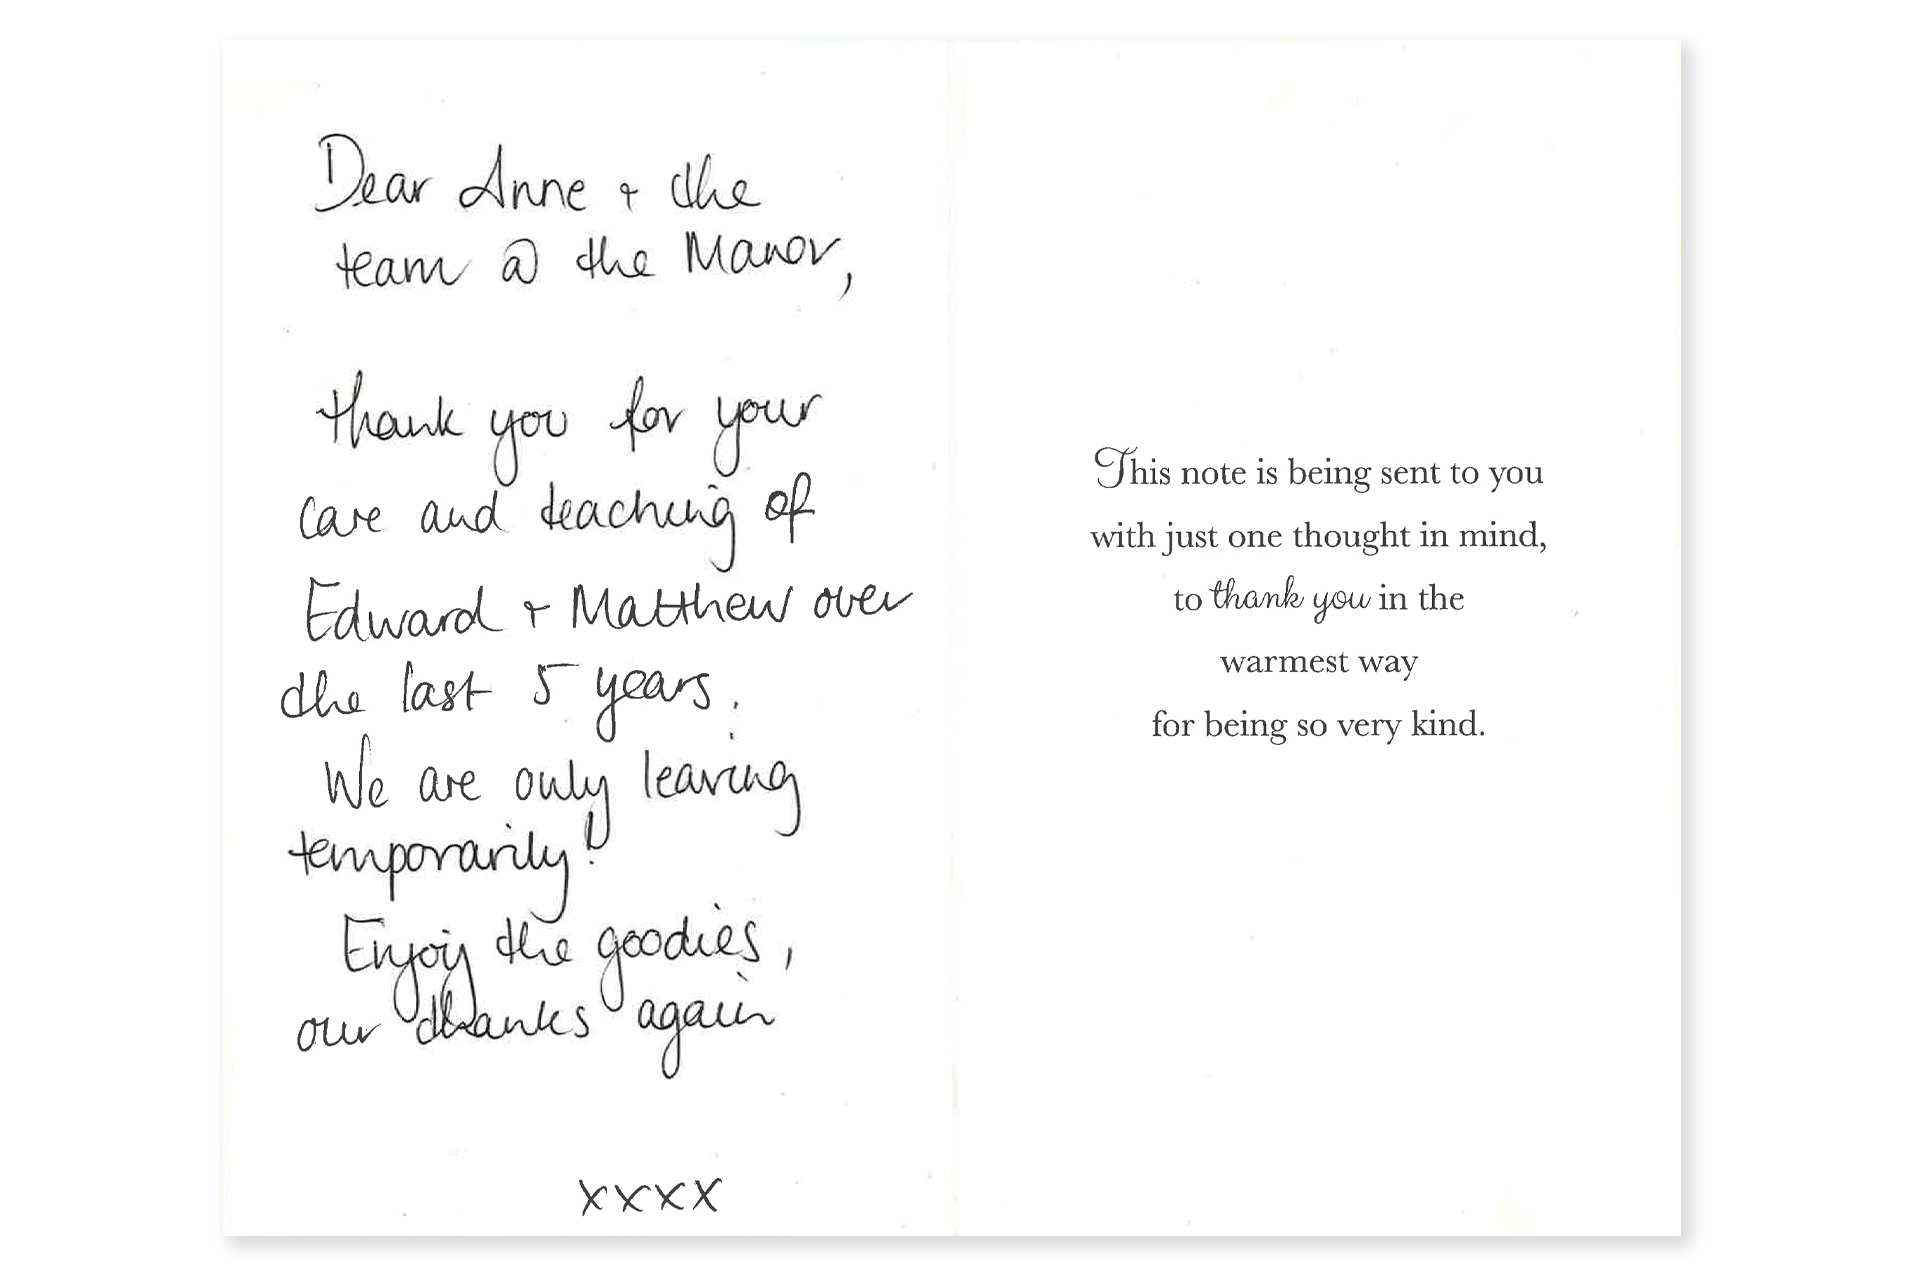 Dear Anne + the
team @ the Manor,
thank you for your
care and teaching of
Edward + Matthew over
the last 5 years.
We are only leaving
temporarily!
Enjoy the goodies,
our thanks again
xxxx
This note is being sent to you
with just one thought in mind,
to thank you in the
warmest way
for being so very kind.